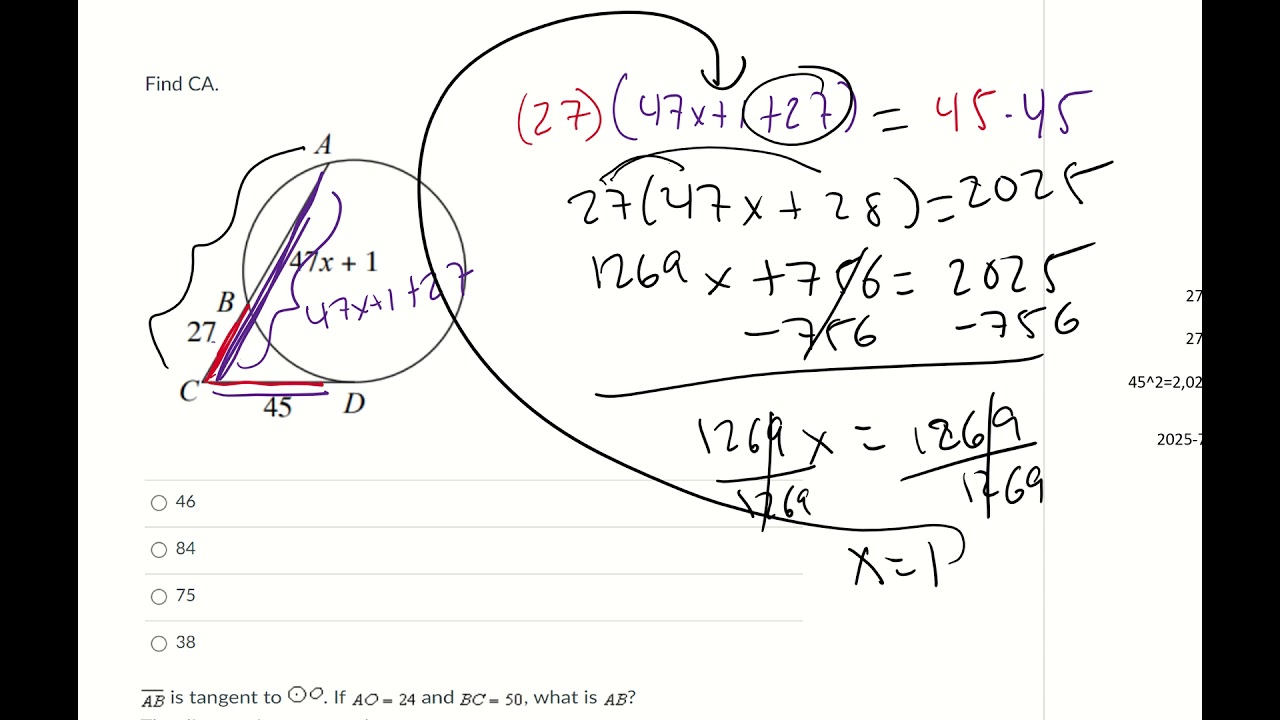 Find CA.
(27)(47x+1+27) = 45·45
A
27(47x+28)=2025
47x + 1
47x+1+27
1269x+756=2025
B
27
27
-756 -756
27
C
45
D
45^2=2,02
1269x = 1269
2025-7
1269 1269
x=1
46
84
75
38
AB is tangent to ⊙O. If AO = 24 and BC = 50, what is AB?